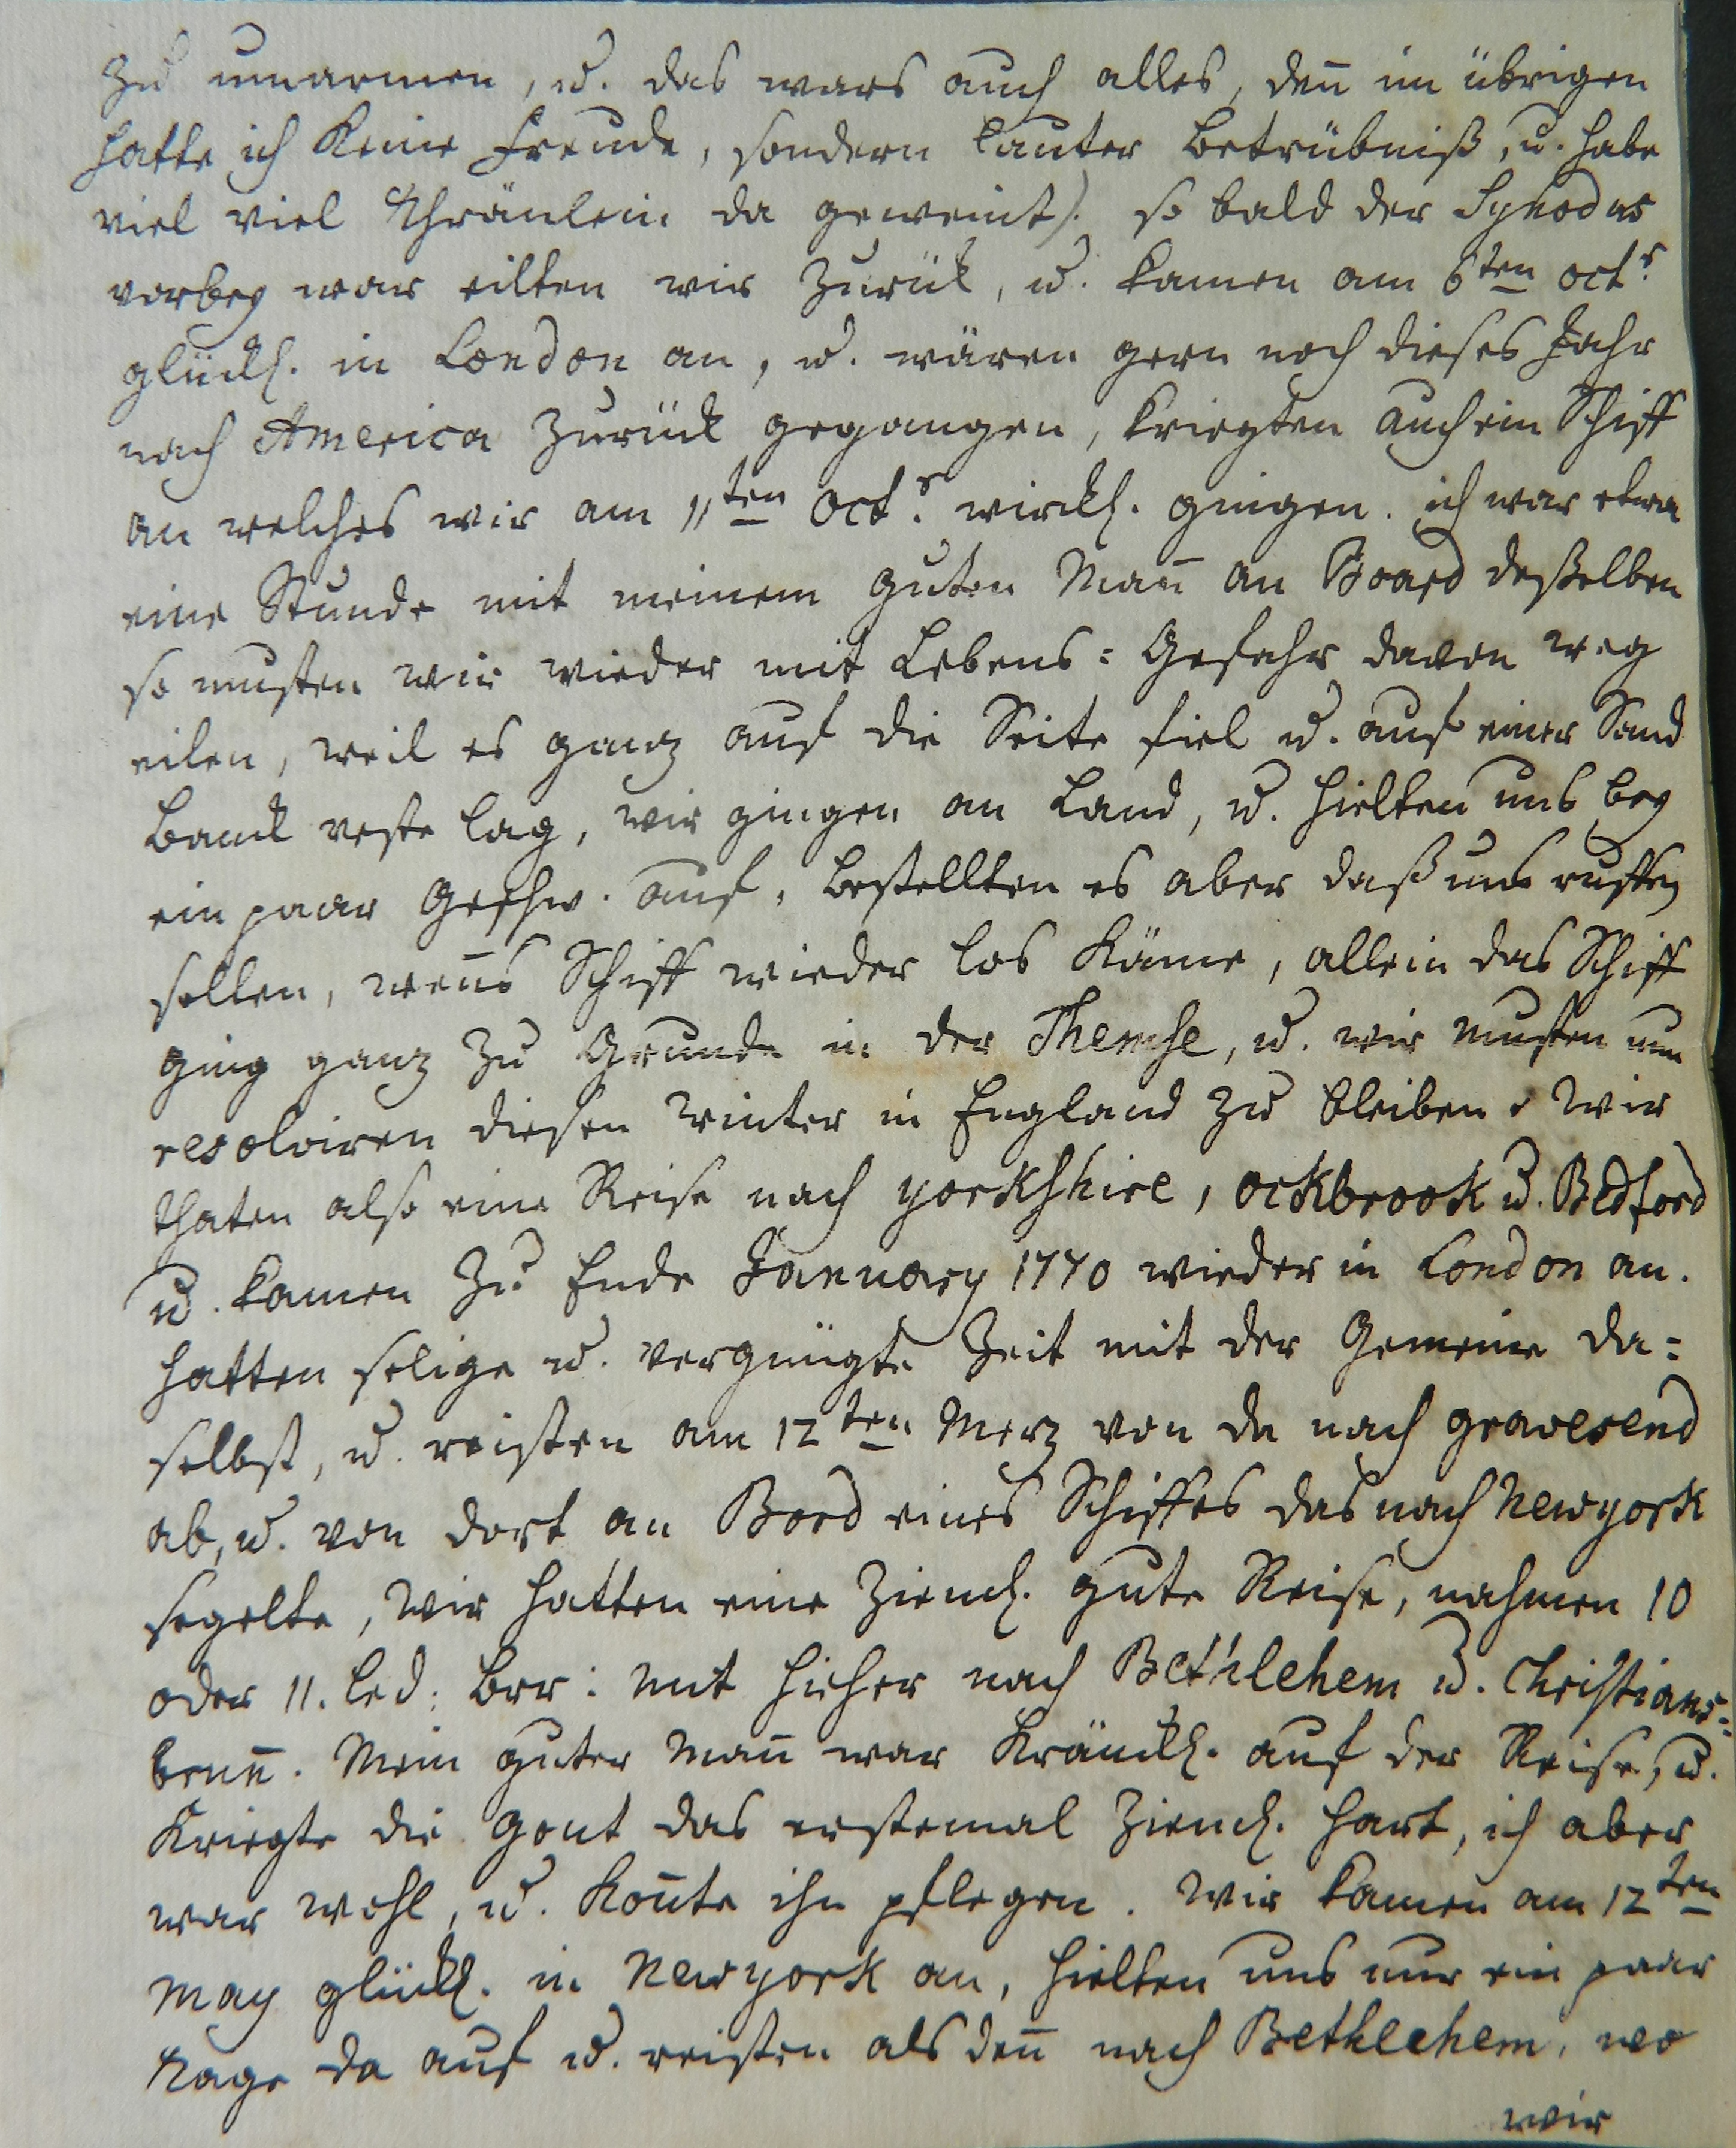 zu umarmen, u. das wars auch alles, deñ im übrigen
hatte ich keine Freude, sondern lauter Betrübniß, u. habe
viel viel Thränlein da geweint). so bald der Synodus
vorbey war eilten wir zurük, u. kamen am 6ten octr.
glückl. in London an, u. wären gern noch dieses Jahr
nach America zurück gegangen, kriegten auch ein Schiff
an welches wir am 11ten Octr. wirckl. gingen. ich war etwa
eine Stunde mit meinem guten Mañ an Board deßelben
so musten wir wieder mit Lebens=Gefahr davon weg
eilen, weil es ganz auf die Seite fiel u. auf einer Sand
Banck veste lag, wir gingen an Land, u. hielten uns bey
ein paar Geschw. auf, bestellten es aber daß uns ruffen
sollen, weñs Schiff wieder los käme, allein das Schiff
ging ganz zu Grunde in der Themse, u. wir musten nun
resolviren diesen Winter in England zu bleiben. Wir
thaten also eine Reise nach yorkshire, ockbrook u. Bedford
u. kamen zu Ende January 1770 wieder in London an.
hatten selige u. vergnügte Zeit mit der Gemeine da=
selbst, u. reisten am 12ten Merz von da nach gravesend
ab, u. von dort an Bord eines Schiffes das nach Newyork
segelte, Wir hatten eine zieml. gute Reise, nahmen 10
oder 11. led: Brr: mit hieher nach Bethlehem u. Christians=
bruñ. Mein guter Mañ war kränckl. auf der Reise, u.
kriegte die Gout das erstemal zieml. hart, ich aber
war wohl, u. koñte ihn pflegen. Wir kamen am 12ten
May glückl. in Newyork an, hielten uns nur ein paar
Tage da auf u. reisten als deñ nach Bethlehem, wo
wir